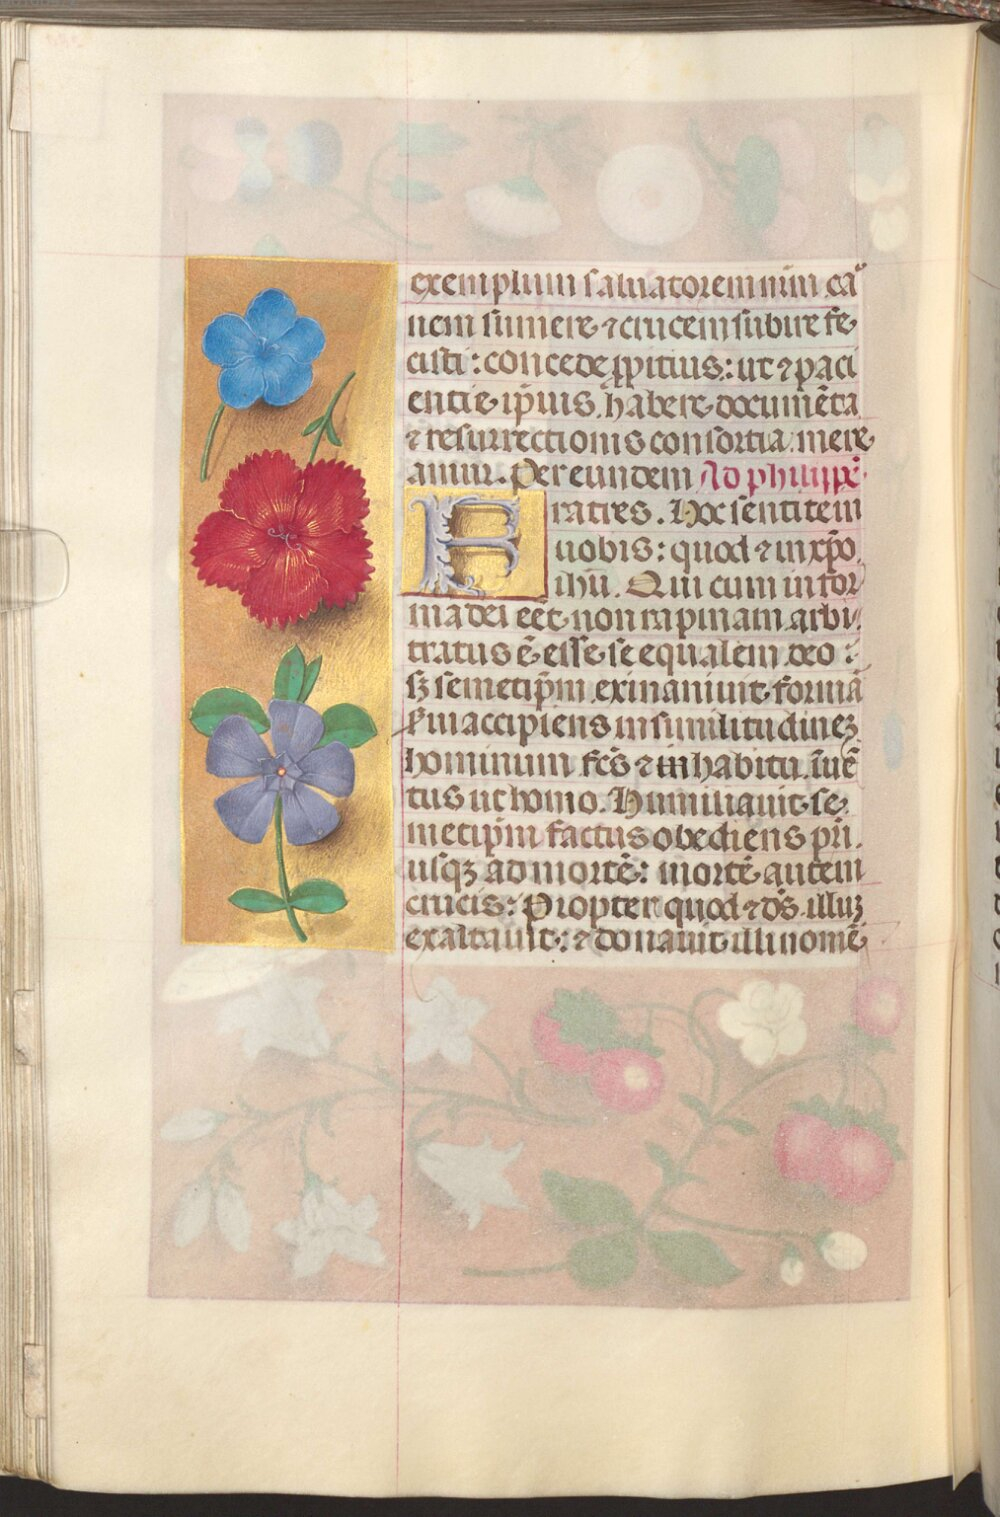 exemplum saluatorem nrm̄ car
nem sumere ⁊ crucem subire fe
cisti : concede ꝓpitius : ut ⁊ paci
entie ip̄ius habere documēta
⁊ resurrectionis consortia mere
amur. Per eundem Ad philippē
Fratres. Hoc sentite in
uobis : quod ⁊ in xp̄o
ihu. Qui cum in for
ma dei eēt non rapinam arbi
tratus ē esse se equalem deo :
sꝫ semetip̄m exinaniuit formā
serui accipiens in similitudineꝫ
hominum fcs̄ ⁊ in habitu īuē
tus ut homo. Humiliauit se
metip̄m factus obediens pr̄i
usqꝫ ad mortē : mortē autem
crucis : Propter quod ⁊ ds̄ illuꝫ
exaltauit : ⁊ donauit illi nomē